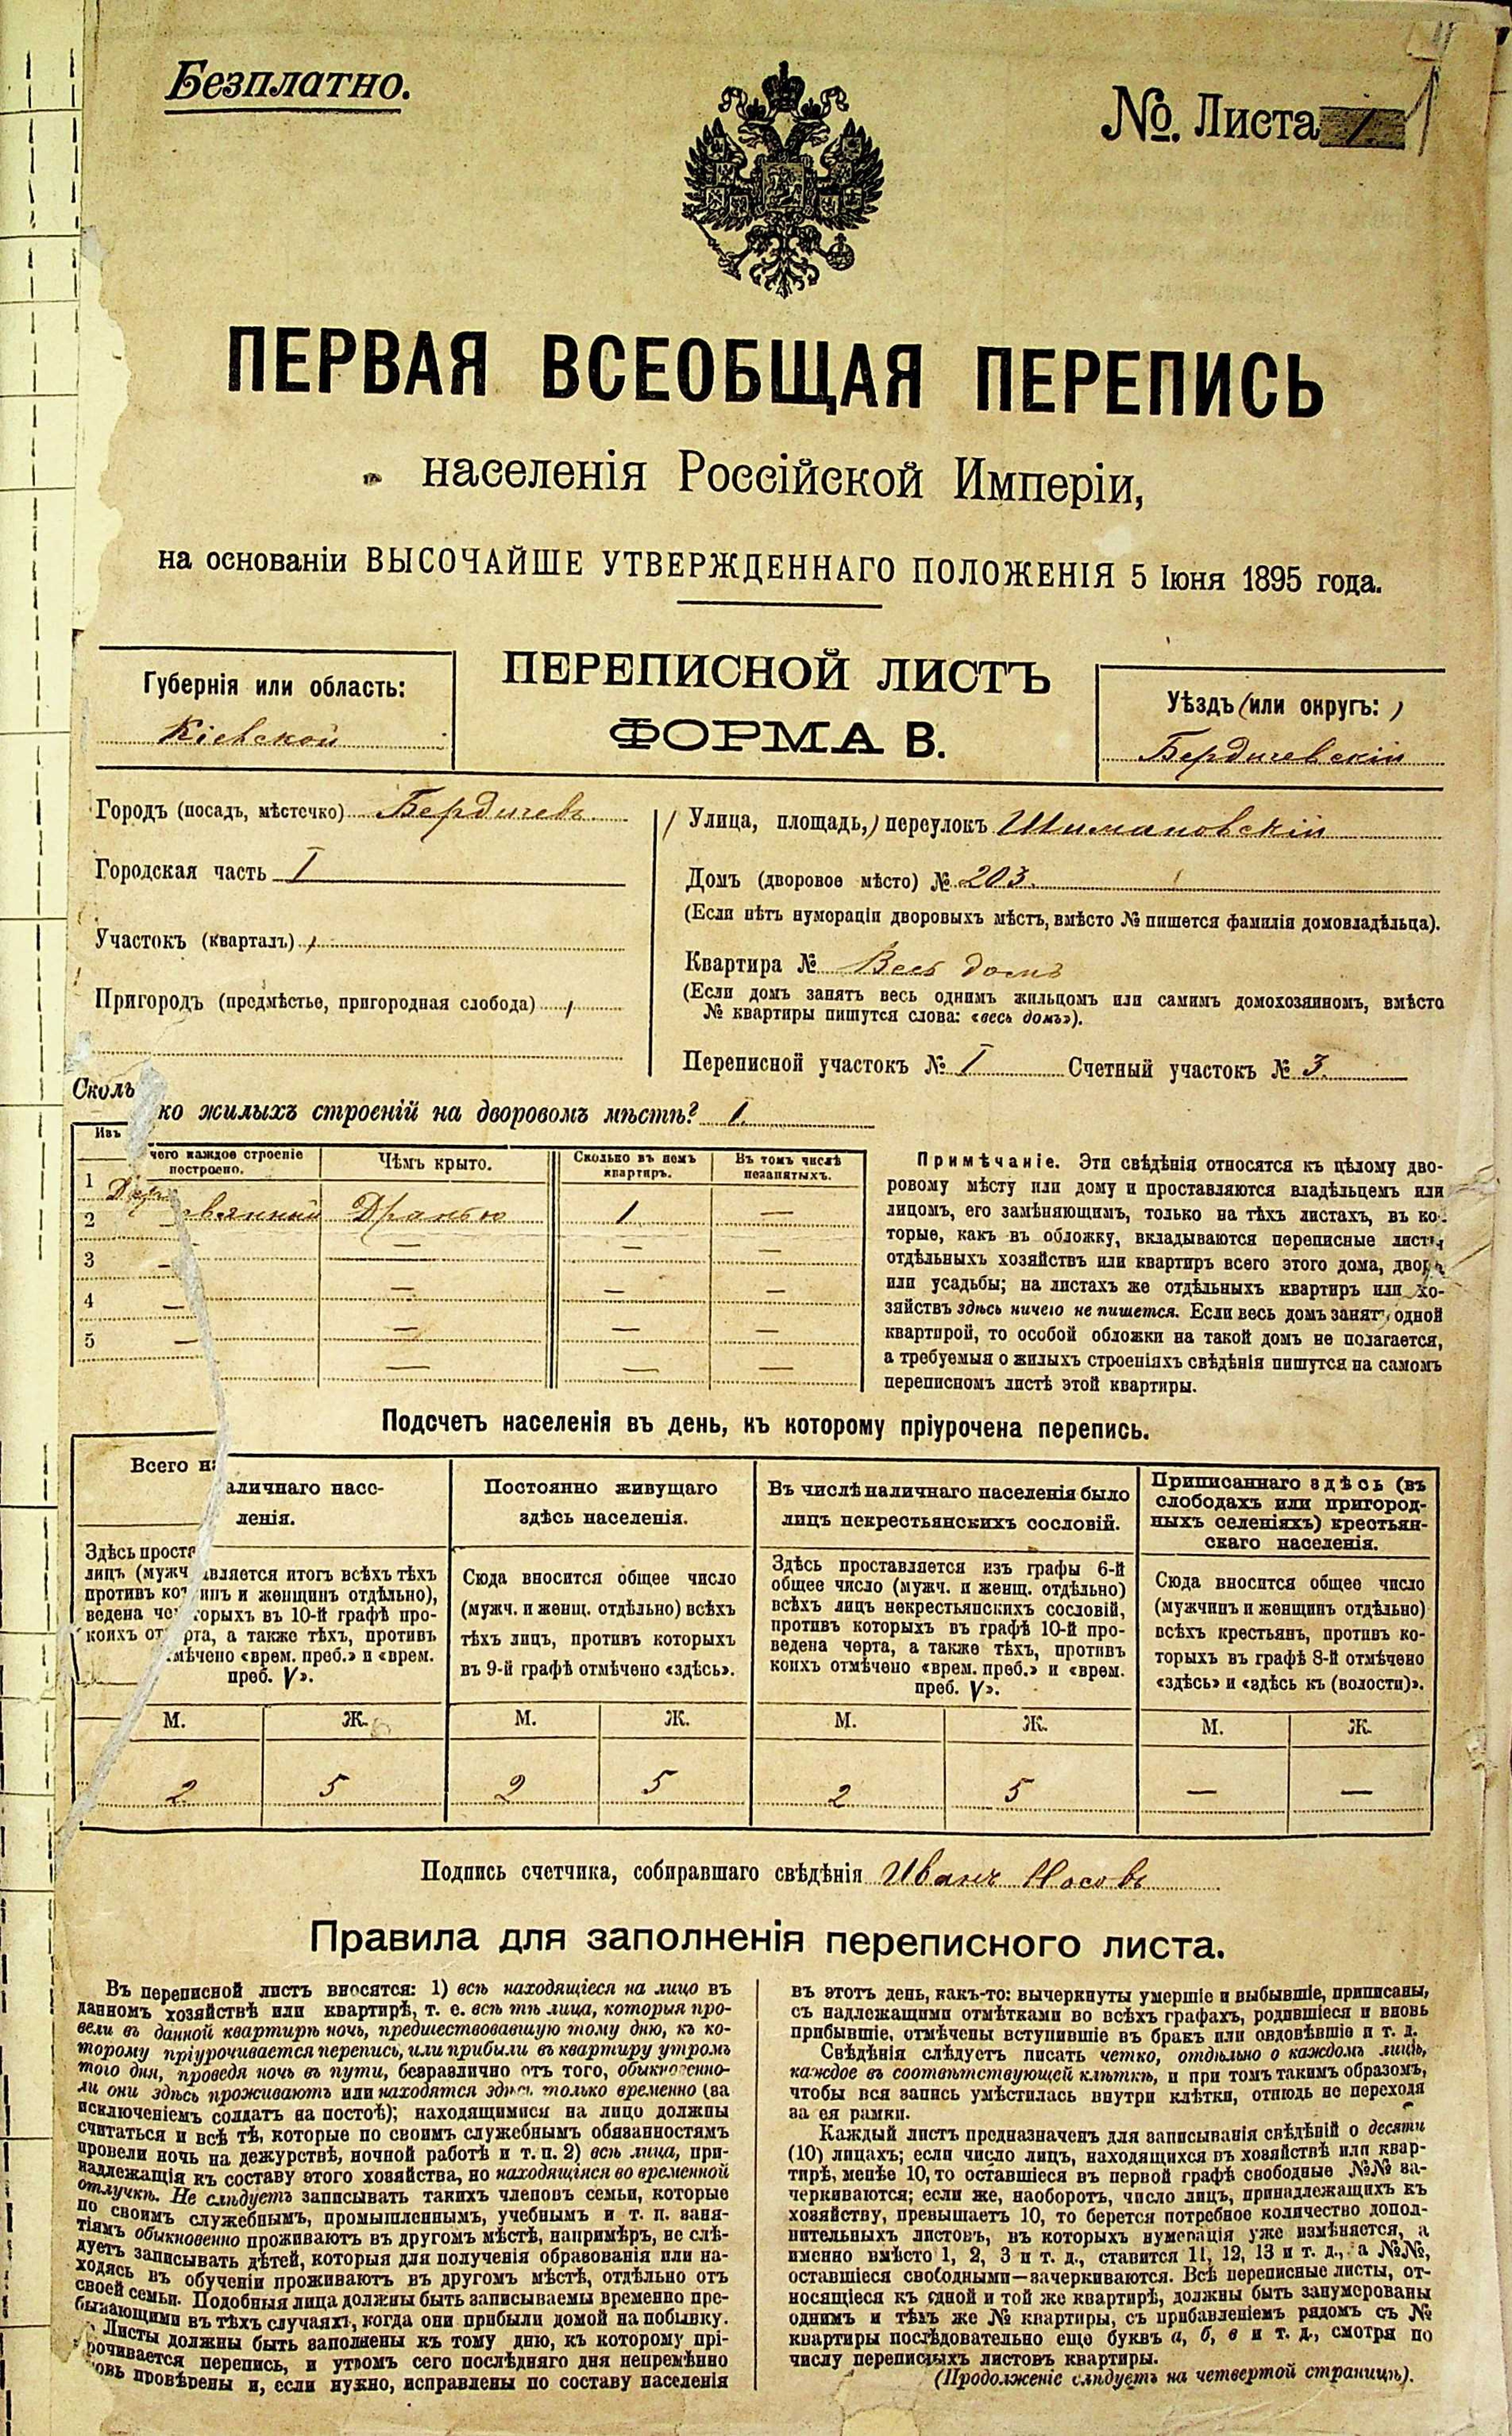 Безплатно.
№. Листа 1
ПЕРВАЯ ВСЕОБЩАЯ ПЕРЕПИСЬ
населенія Россійской Имперіи,
на основаніи ВЫСОЧАЙШЕ УТВЕРЖДЕННАГО ПОЛОЖЕНІЯ 5 Іюня 1895 года.
Губернія или область:
Кіевской
ПЕРЕПИСНОЙ ЛИСТЪ
ФОРМА В.
Уѣздъ (или округъ:)
Бердичевскій
Городъ (посадъ, мѣстечко) Бердичевъ
Городская часть I
Участокъ (кварталъ)
Пригородъ (предмѣстье, пригородная слобода)
Улица, площадь, переулокъ Шимановскій
Домъ (дворовое мѣсто) № 203.
(Если нѣтъ нумораціи дворовыхъ мѣстъ, вмѣсто № пишется фамилія домовладѣльца).
Квартира № Весь домъ
(Если домъ занятъ весь однимъ жильцомъ или самимъ домохозяиномъ, вмѣсто
№ квартиры пишутся слова: «весь домъ»).
Переписной участокъ № I Счетный участокъ № 3.
Сколько жилыхъ строеній на дворовомъ мѣстѣ? 1.
Изъ чего каждое строеніе
построено.
Чѣмъ крыто.
Сколько въ немъ
квартиръ.
Въ томъ числѣ
незанятыхъ.
1 Деревянный Дранью 1 —
2 — — — —
3 — — — —
4 — — — —
5 — — — —
Примѣчаніе. Эти свѣдѣнія относятся къ цѣлому дво-
ровому мѣсту или дому и проставляются владѣльцемъ или
лицомъ, его замѣняющимъ, только на тѣхъ листахъ, въ ко-
торые, какъ въ обложку, вкладываются переписные листы
отдѣльныхъ хозяйствъ или квартиръ всего этого дома, двора
или усадьбы; на листахъ же отдѣльныхъ квартиръ или хо-
зяйствъ здѣсь ничего не пишется. Если весь домъ занятъ одной
квартирой, то особой обложки на такой домъ не полагается,
а требуемыя о жилыхъ строеніяхъ свѣдѣнія пишутся на самомъ
переписномъ листѣ этой квартиры.
Подсчетъ населенія въ день, къ которому пріурочена перепись.
Всего наличнаго насе-
ленія.
Здѣсь проставляется итогъ всѣхъ тѣхъ
лицъ (мужчинъ и женщинъ отдѣльно),
противъ которыхъ въ 10-й графѣ про-
ведена черта, а также тѣхъ, противъ
коихъ отмѣчено «врем. преб.» и «врем.
преб. V».
Постоянно живущаго
здѣсь населенія.
Сюда вносится общее число
(мужч. и женщ. отдѣльно) всѣхъ
тѣхъ лицъ, противъ которыхъ
въ 9-й графѣ отмѣчено «здѣсь».
Въ числѣ наличнаго населенія было
лицъ некрестьянскихъ сословій.
Здѣсь проставляется изъ графы 6-й
общее число (мужч. и женщ. отдѣльно)
всѣхъ лицъ некрестьянскихъ сословій,
противъ которыхъ въ графѣ 10-й про-
ведена черта, а также тѣхъ, противъ
коихъ отмѣчено «врем. преб.» и «врем.
преб. V».
Приписаннаго здѣсь (въ
слободахъ или пригород-
ныхъ селеніяхъ) крестьян-
скаго населенія.
Сюда вносится общее число
(мужчинъ и женщинъ отдѣльно)
всѣхъ крестьянъ, противъ ко-
торыхъ въ графѣ 8-й отмѣчено
«здѣсь» и «здѣсь къ (волости)».
М. Ж. М. Ж. М. Ж. М. Ж.
2 5 2 5 2 5 — —
Подпись счетчика, собиравшаго свѣдѣнія Иванъ Носовъ
Правила для заполненія переписного листа.
Въ переписной листъ вносятся: 1) всѣ находящіеся на лицо въ
данномъ хозяйствѣ или квартирѣ, т. е. всѣ тѣ лица, которыя про-
вели въ данной квартирѣ ночь, предшествовавшую тому дню, къ ко-
торому пріурочивается перепись, или прибыли въ квартиру утромъ
того дня, проведя ночь въ пути, безразлично отъ того, обыкновенно-
ли они здѣсь проживаютъ или находятся здѣсь только временно (за
исключеніемъ солдатъ на постоѣ); находящимися на лицо должны
считаться и всѣ тѣ, которые по своимъ служебнымъ обязанностямъ
провели ночь на дежурствѣ, ночной работѣ и т. п. 2) всѣ лица, при-
надлежащія къ составу этого хозяйства, но находящіяся во временной
отлучкѣ. Не слѣдуетъ записывать такихъ членовъ семьи, которые
по своимъ служебнымъ, промышленнымъ, учебнымъ и т. п. заня-
тіямъ обыкновенно проживаютъ въ другомъ мѣстѣ, напримѣръ, не слѣ-
дуетъ записывать дѣтей, которыя для полученія образованія или на-
ходясь въ обученіи проживаютъ въ другомъ мѣстѣ, отдѣльно отъ
своей семьи. Подобныя лица должны быть записываемы временно пре-
бывающими въ тѣхъ случаяхъ, когда они прибыли домой на побывку.
Листы должны быть заполнены къ тому дню, къ которому прі-
урочивается перепись, и утромъ сего послѣдняго дня непремѣнно
вновь провѣрены и, если нужно, исправлены по составу населенія
въ этотъ день, какъ-то: вычеркнуты умершіе и выбывшіе, приписаны,
съ надлежащими отмѣтками во всѣхъ графахъ, родившіеся и вновь
прибывшіе, отмѣчены вступившіе въ бракъ или овдовѣвшіе и т. д.
Свѣдѣнія слѣдуетъ писать четко, отдѣльно о каждомъ лицѣ,
каждое въ соотвѣтствующей клѣткѣ, и при томъ такимъ образомъ,
чтобы вся запись умѣстилась внутри клѣтки, отнюдь не переходя
за ея рамки.
Каждый листъ предназначенъ для записыванія свѣдѣній о десяти
(10) лицахъ; если число лицъ, находящихся въ хозяйствѣ или квар-
тирѣ, менѣе 10, то оставшіеся въ первой графѣ свободные №№ за-
черкиваются; если же, наоборотъ, число лицъ, принадлежащихъ къ
хозяйству, превышаетъ 10, то берется потребное количество допол-
нительныхъ листовъ, въ которыхъ нумерація уже измѣняется, а
именно вмѣсто 1, 2, 3 и т. д., ставится 11, 12, 13 и т. д., а №№,
оставшіеся свободными—зачеркиваются. Всѣ переписные листы, от-
носящіеся къ одной и той же квартирѣ, должны быть занумерованы
однимъ и тѣмъ же № квартиры, съ прибавленіемъ рядомъ съ №
квартиры послѣдовательно еще буквъ а, б, в и т. д., смотря по
числу переписныхъ листовъ квартиры.
(Продолженіе слѣдуетъ на четвертой страницѣ).